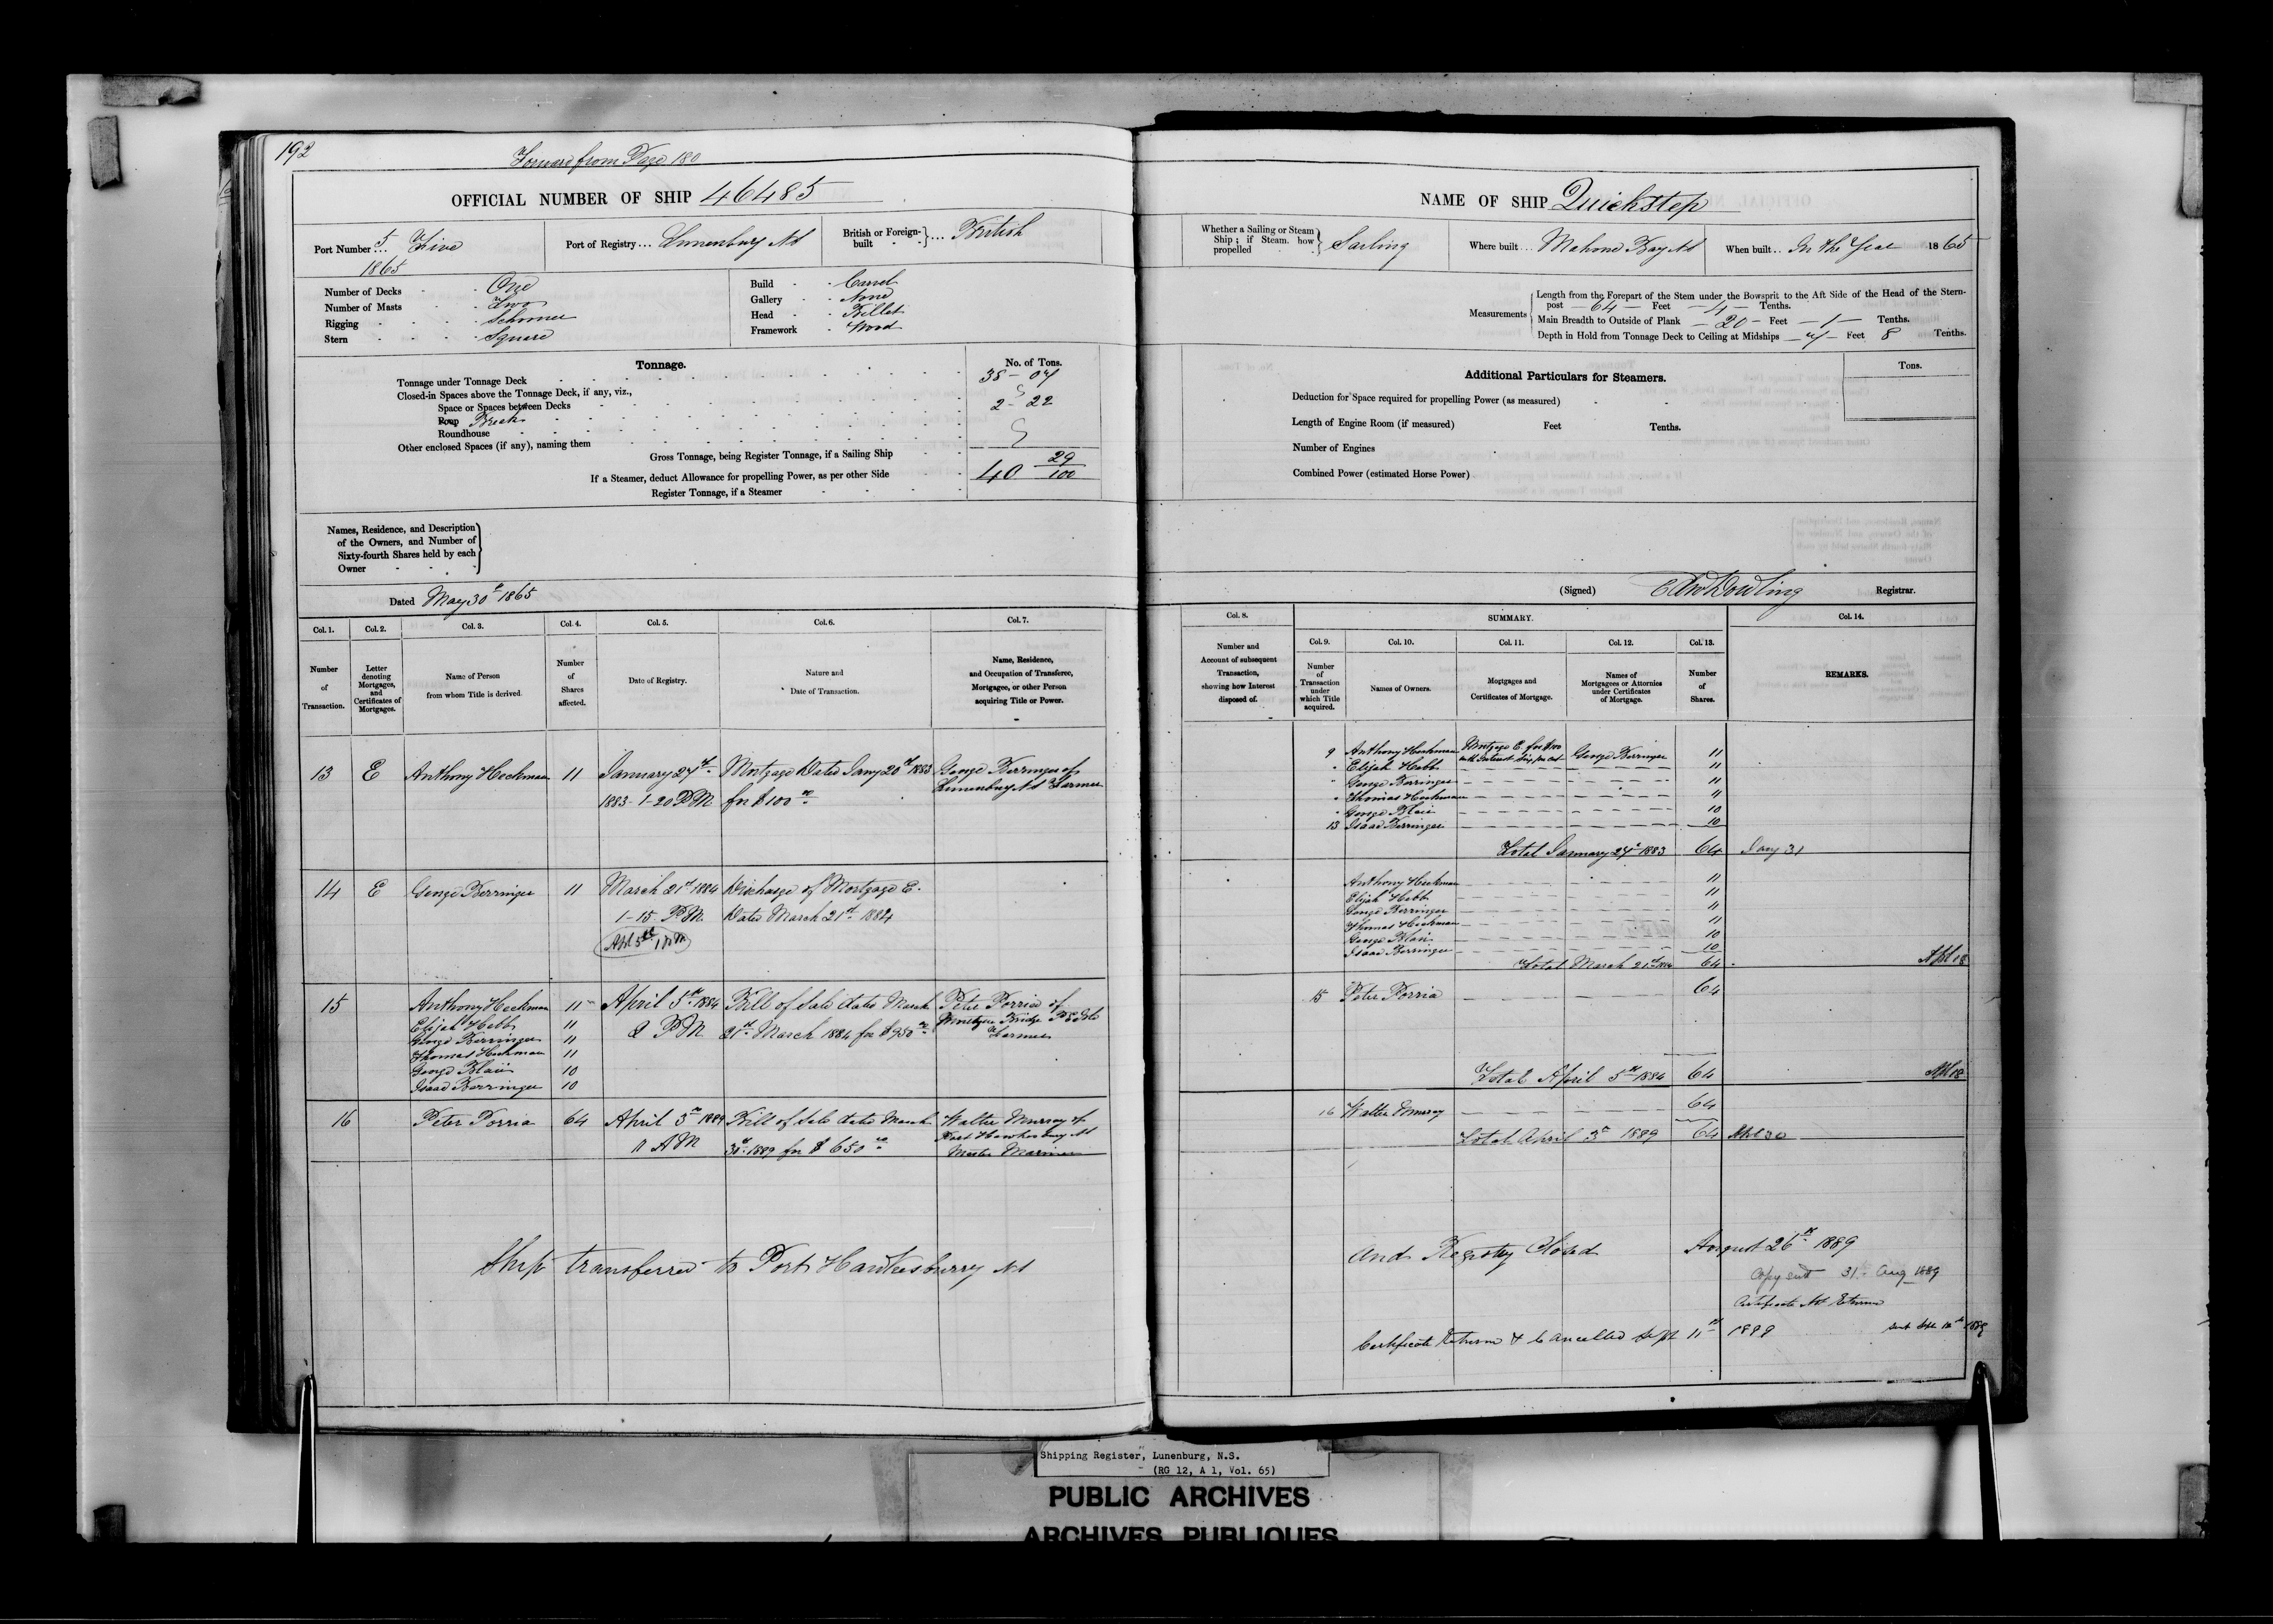 192
Forward from Page 180
OFFICIAL NUMBER OF SHIP 46485
Port Number 5 Five
1865
Port of Registry ... Lunenburg NS
British or Foreign-built } ... British
Number of Decks One
Number of Masts Two
Rigging Schooner
Stern Square
Build Carvel
Gallery None
Head Billet
Framework Wood
Tonnage.
No. of Tons.
Tonnage under Tonnage Deck 38 - 07
Closed-in Spaces above the Tonnage Deck, if any, viz.,
Space or Spaces between Decks
Poop Break 2 - 22
Roundhouse
Other enclosed Spaces (if any), naming them
Gross Tonnage, being Register Tonnage, if a Sailing Ship
If a Steamer, deduct Allowance for propelling Power, as per other Side 40 29/100
Register Tonnage, if a Steamer
Names, Residence, and Description
of the Owners, and Number of
Sixty-fourth Shares held by each
Owner
Dated May 30th 1865
Col. 1. Col. 2. Col. 3. Col. 4. Col. 5. Col. 6. Col. 7.
Number of Transaction.
Letter denoting Mortgages, and Certificates of Mortgages.
Name of Person from whom Title is derived.
Number of Shares affected.
Date of Registry.
Nature and Date of Transaction.
Name, Residence, and Occupation of Transferee, Mortgagee, or other Person acquiring Title or Power.
13 E Anthony Heckman 11 January 24th Mortgage Dated Jany 20th 1883 George Berringer of
1883 - 1-20 PM for $100 00 Lunenburg NS Farmer
14 E George Berringer 11 March 21st 1884 Discharge of Mortgage E.
1-15 PM. Dated March 21st 1884
Apl 5th 1 PM
15 Anthony Heckman 11 April 5th 1884 Bill of Sale dated March Peter Porria of
Elijah Hebb 11 2 PM 21st March 1884 for $950 00 Bridge
George Berringer 11 Farmer
Thomas Heckman 11
George Blair 10
Isaac Berringer 10
16 Peter Porria 64 April 3rd 1889 Bill of Sale dated March Walter Murray of
11 AM 30th 1889 for $650 00 Port Hawkesbury NS
Master Mariner
Ship transferred to Port Hawkesburry NS
NAME OF SHIP Quickstep
Whether a Sailing or Steam Ship; if Steam, how propelled } Sailing
Where built ... Mahone Bay NS
When built .. In the Year 1865
Measurements
Length from the Forepart of the Stem under the Bowsprit to the Aft Side of the Head of the Stern-
post — 64 — Feet — 4 — Tenths.
Main Breadth to Outside of Plank — 20 — Feet — 1 — Tenths.
Depth in Hold from Tonnage Deck to Ceiling at Midships — 7 — Feet 8 Tenths.
Additional Particulars for Steamers.
Tons.
Deduction for Space required for propelling Power (as measured)
Length of Engine Room (if measured) Feet Tenths.
Number of Engines
Combined Power (estimated Horse Power)
(Signed) Dowling Registrar.
Col. 8. SUMMARY. Col. 14.
Col. 9. Col. 10. Col. 11. Col. 12. Col. 13.
Number and Account of subsequent Transaction, showing how Interest disposed of.
Number of Transaction under which Title acquired.
Names of Owners.
Mortgages and Certificates of Mortgage.
Names of Mortgagees or Attornies under Certificates of Mortgage.
Number of Shares.
REMARKS.
9 Anthony Heckman Mortgage E. for $100 with Interest Six per cent George Berringer 11
" Elijah Hebb 11
" George Berringer 11
" Thomas Heckman 11
" George Blair 10
13 Isaac Berringer 10
Total January 24th 1883 64 Jany 31
Anthony Heckman 11
Elijah Hebb 11
George Berringer 11
Thomas Heckman 11
George Blair 10
Isaac Berringer 10
Total March 21st 1884 64 Apl 18
15 Peter Porria 64
Total April 5th 1884 64 Apl 18
16 Walter Murray 64
Total April 3rd 1889 64 Apl 30
and Registry Closed August 26th 1889
Copy sent 31st Aug 1889
Certificate Not Returned
Certificate Returned & Cancelled Sept 11th 1889 sent Sept 12th 1889
Shipping Register, Lunenburg, N.S.
- (RG 12, A 1, Vol. 65)
PUBLIC ARCHIVES
ARCHIVES PUBLIQUES